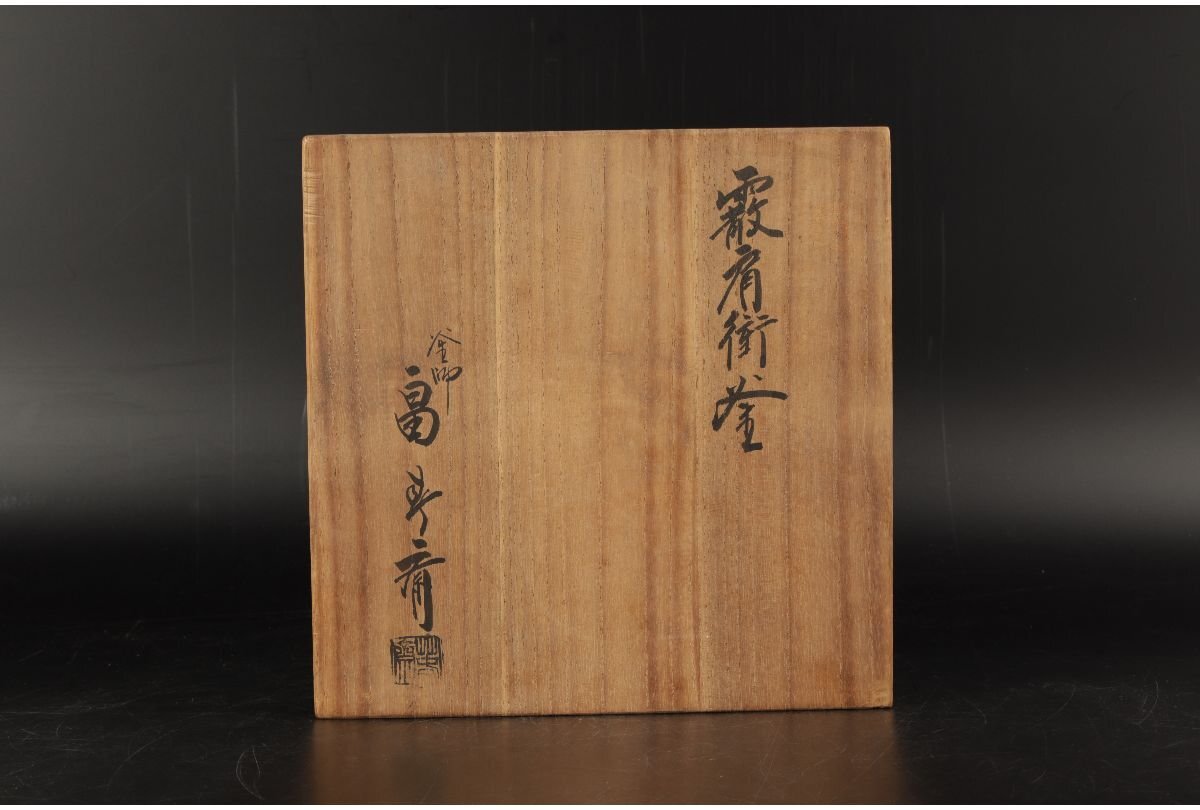 霰肩衝釜
釜師
畠春斎